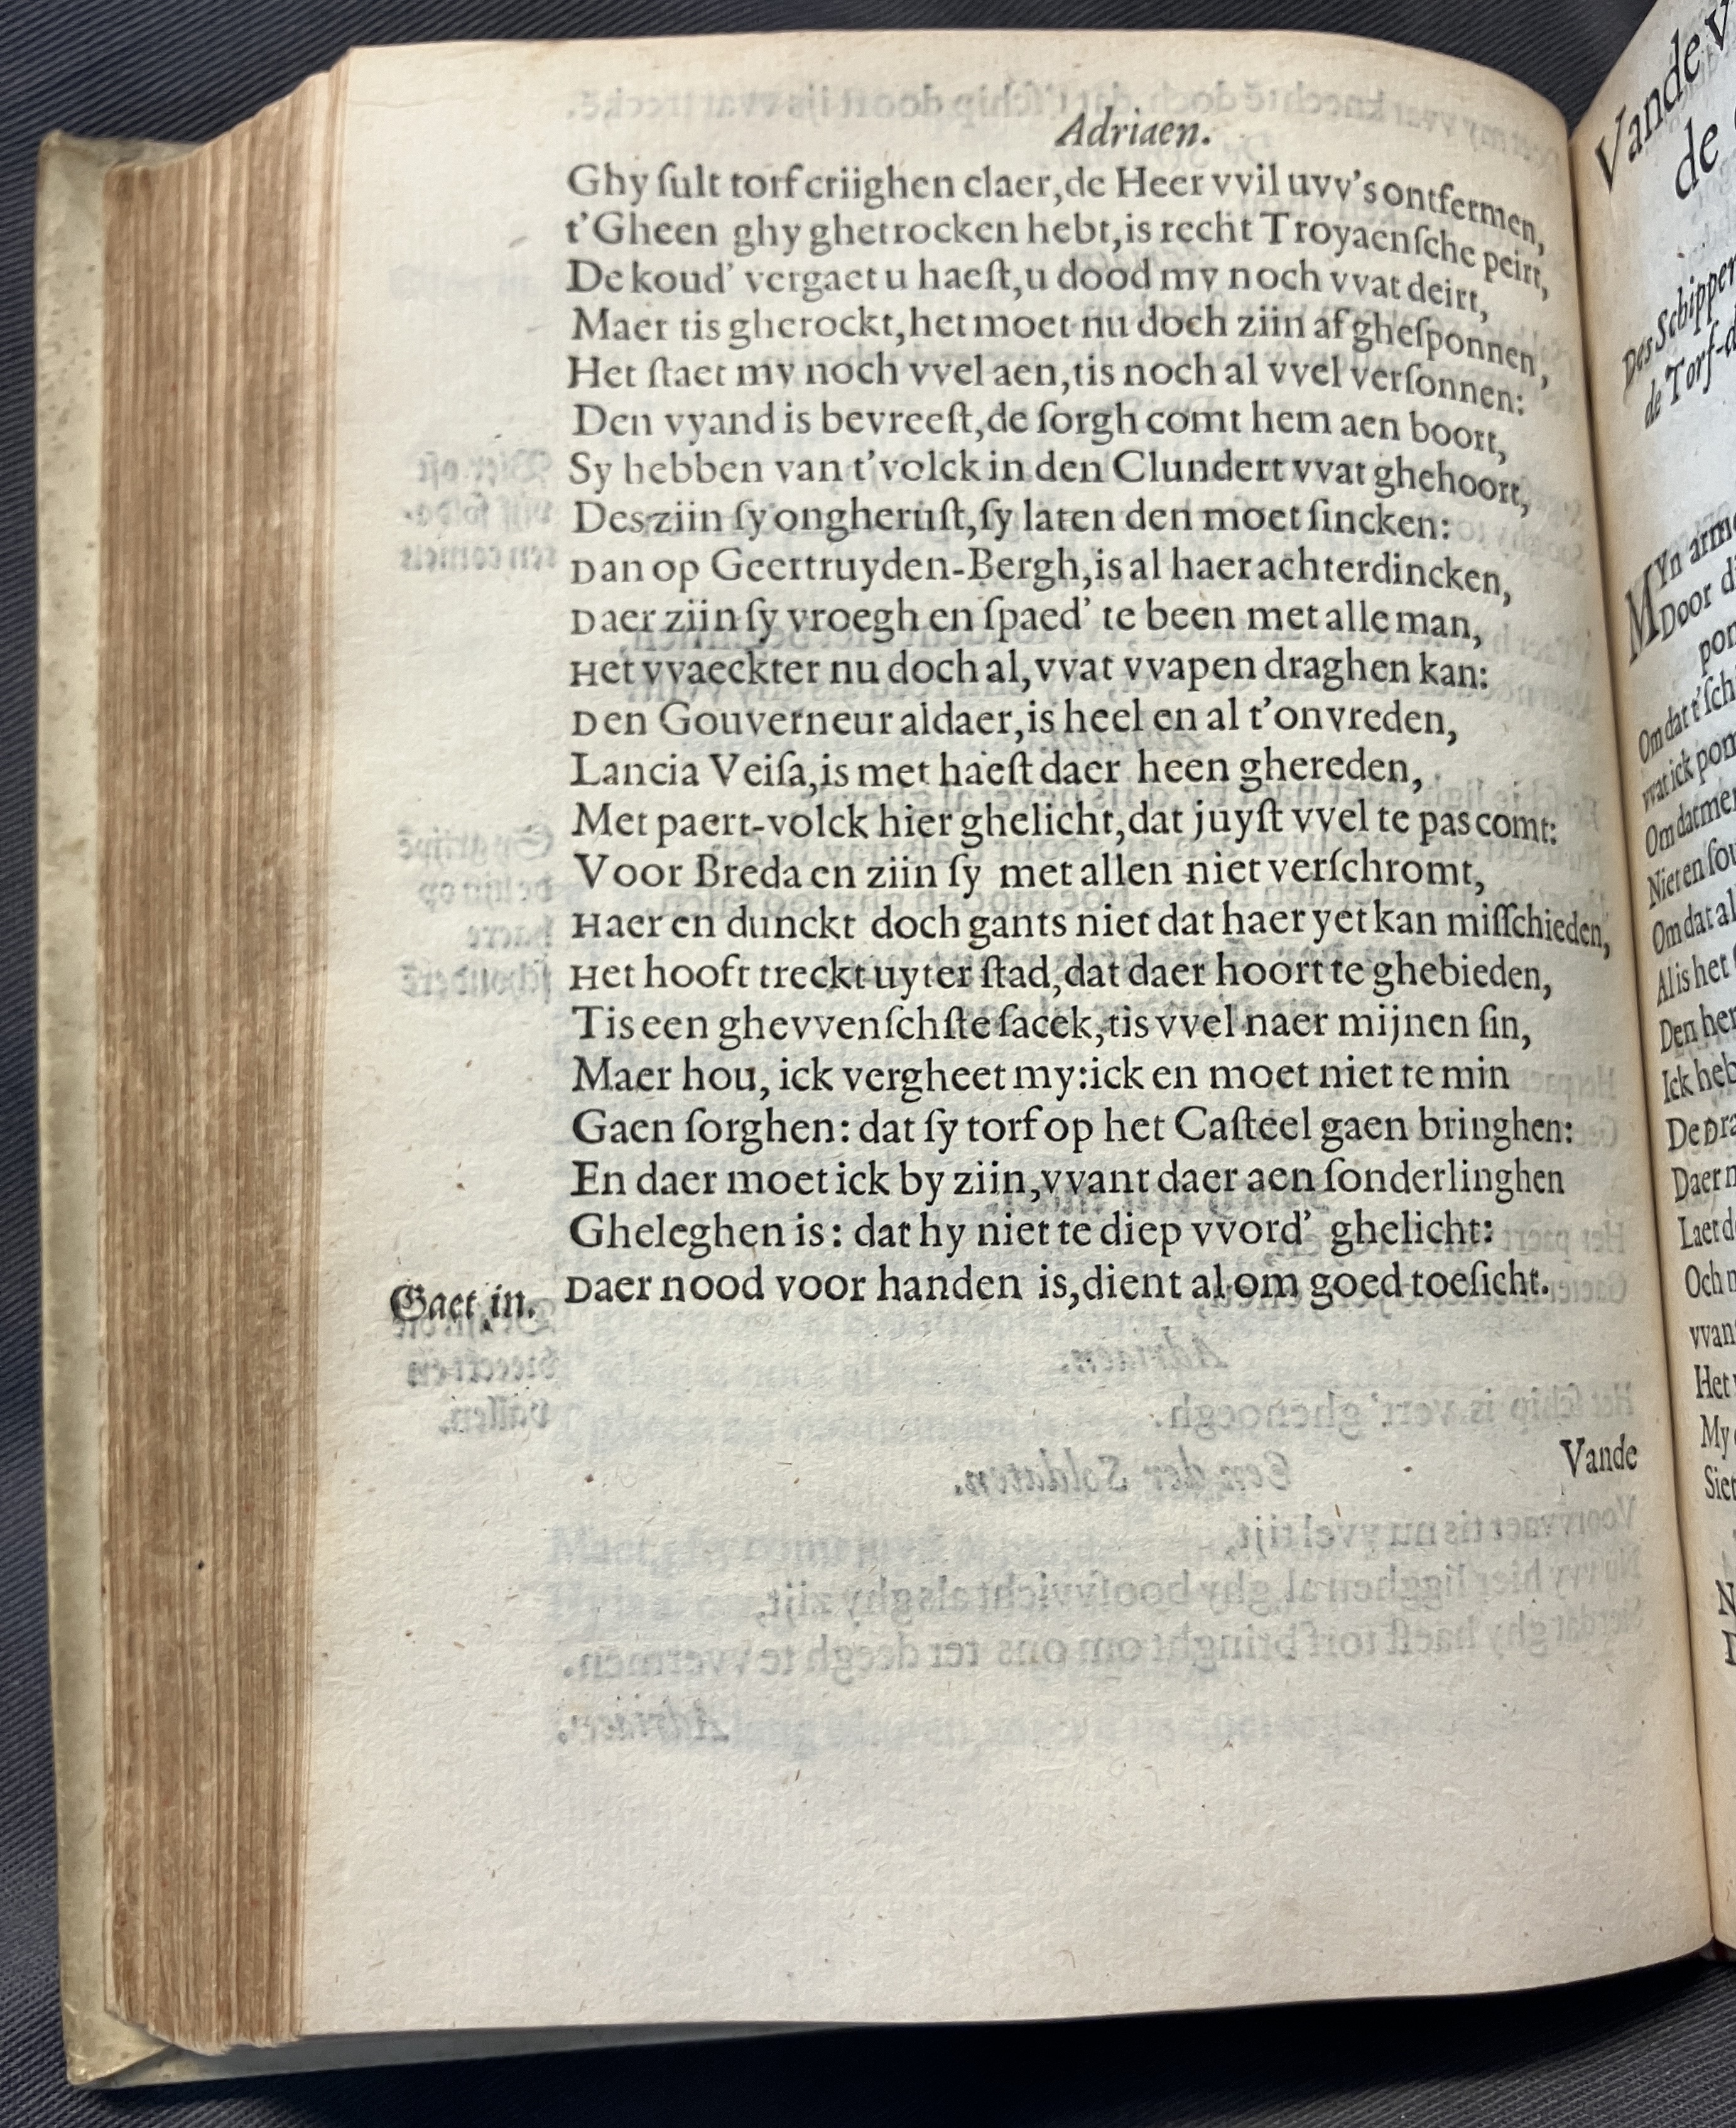 Adriaen.
Ghy ſult torf criighen claer,de Heer vvil uvv's ontfermen,
t'Gheen ghy ghetrocken hebt,is recht Troyaenſche peirt,
De koud' vergaet u haeſt,u dood my noch vvat deirt,
Maer tis gherockt,het moet nu doch ziin af gheſponnen,
Het ſtaet my noch vvel aen,tis noch al vvel verſonnen:
Den vyand is bevreeſt,de ſorgh comt hem aen boort,
Sy hebben van t'volck in den Clundert vvat ghehoort,
Des ziin ſy ongheruſt,ſy laten den moet ſincken:
Dan op Geertruyden-Bergh,is al haer achterdincken,
Daer ziin ſy vroegh en ſpaed' te been met alle man,
Het vvaeckter nu doch al,vvat vvapen draghen kan:
Den Gouverneur aldaer,is heel en al t'onvreden,
Lancia Veiſa,is met haeſt daer heen ghereden,
Met paert-volck hier ghelicht,dat juyſt vvel te pas comt:
Voor Breda en ziin ſy met allen niet verſchromt,
Haer en dunckt doch gants niet dat haer yet kan miſſchieden,
Het hooft treckt uyter ſtad,dat daer hoort te ghebieden,
Tis een ghevvenſchſte ſacek,tis vvel naer mijnen ſin,
Maer hou, ick vergheet my:ick en moet niet te min
Gaen ſorghen: dat ſy torf op het Caſteel gaen bringhen:
En daer moet ick by ziin,vvant daer aen ſonderlinghen
Gheleghen is: dat hy niet te diep vvord' ghelicht:
Gaet in. Daer nood voor handen is,dient al om goed toeſicht.
Vande
Vande V
de
Des Schipper
de Torf-d
MYn arm
Door di
pon
Om dat t'ſch
vvat ick pom
Om datmen
Niet en ſou
Om dat al
Al is het
Den her
Ick heb
De pra
Daer n
Laet d
Och
vvan
Het
My
Sie